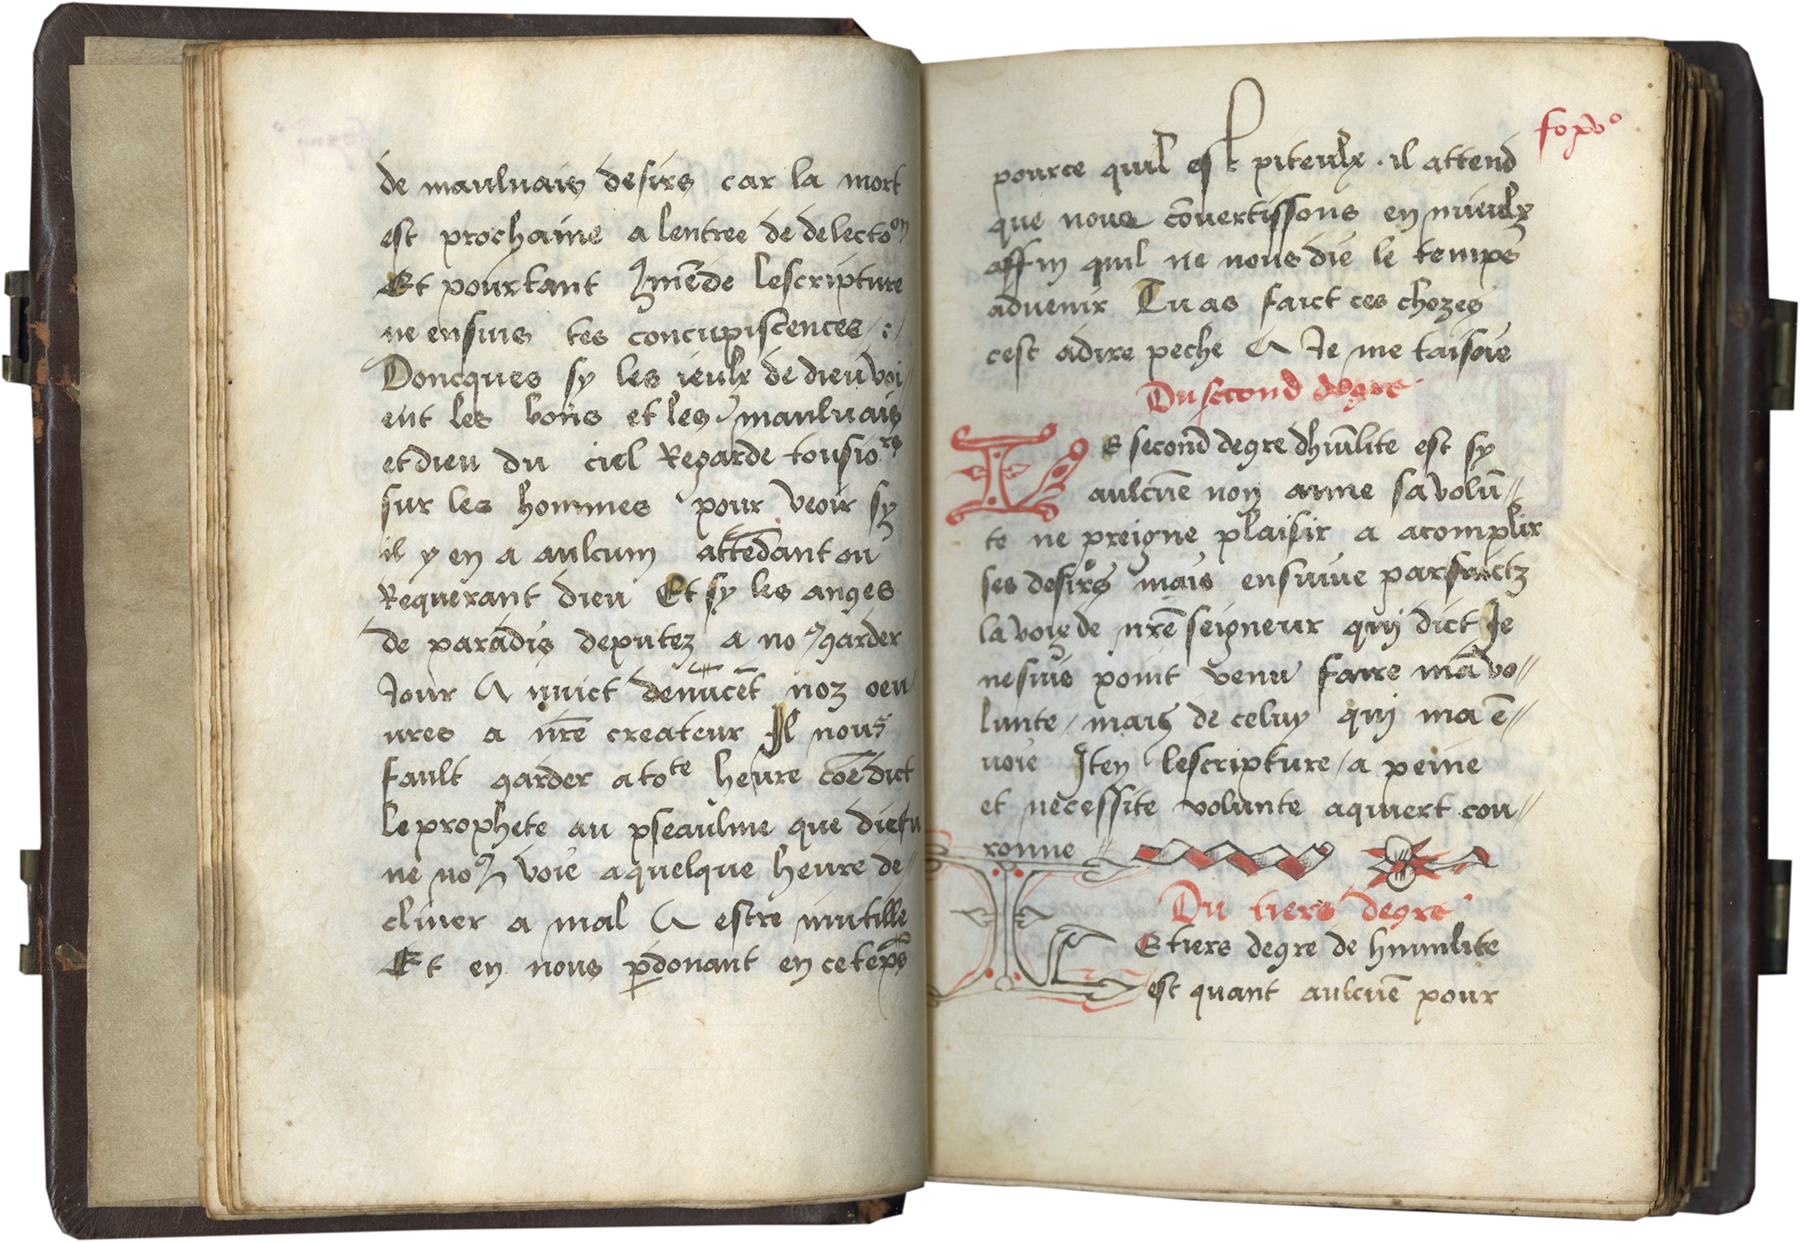 de maulvais desirs car la mort
est prochaine a lentree de delecto͞on
Et pourtant ꝯmēde lescripture
ne ensuis tes concupiscences /:/
Doncques sy les ieulx de dieu voi//
ent les bons et les maulvais
et dieu du ciel Regarde tousioʳˢ
sur les hommes pour veoir sy
il y en a aulcun attēdant ou
Requerant dieu Et sy les anges
de paradis deputez a noꝰ garder
Jour & nuict denūcēt noz oeu/
ures a nr̄e createur Il nous
fault garder a toᵗᵉ heure cōe dict
le prophete au pseaulme que dieu
ne noꝰ voie a quelque heure de//
cliner a mal & estre inutille
Et en nous ꝑdonant en ce tēps
fo xvᵒ
pource quil est piteulx . il attend
que nous cōuertissons en mieulx
affin quil ne nous die le temps
aduenir Tu as faict ces chozes
cest adire peche & Je me taisoie
Du second degre
LE second degre dhūilite est sy
aulcūe non ame sa volū//
te ne preigne plaisir a acomplir
ses desirs mais ensuiue par faictz
la voie de nr̄e seigneur qui dict Je
ne suis point venu faire ma vo//
lunte / mais de celuy qui ma ē//
voie Iten lescripture / a peine
et necessite volunte aquiert cou//
ronne //
Du tiers degre
LE tiers degre de humilite
est quant aulcūe pour